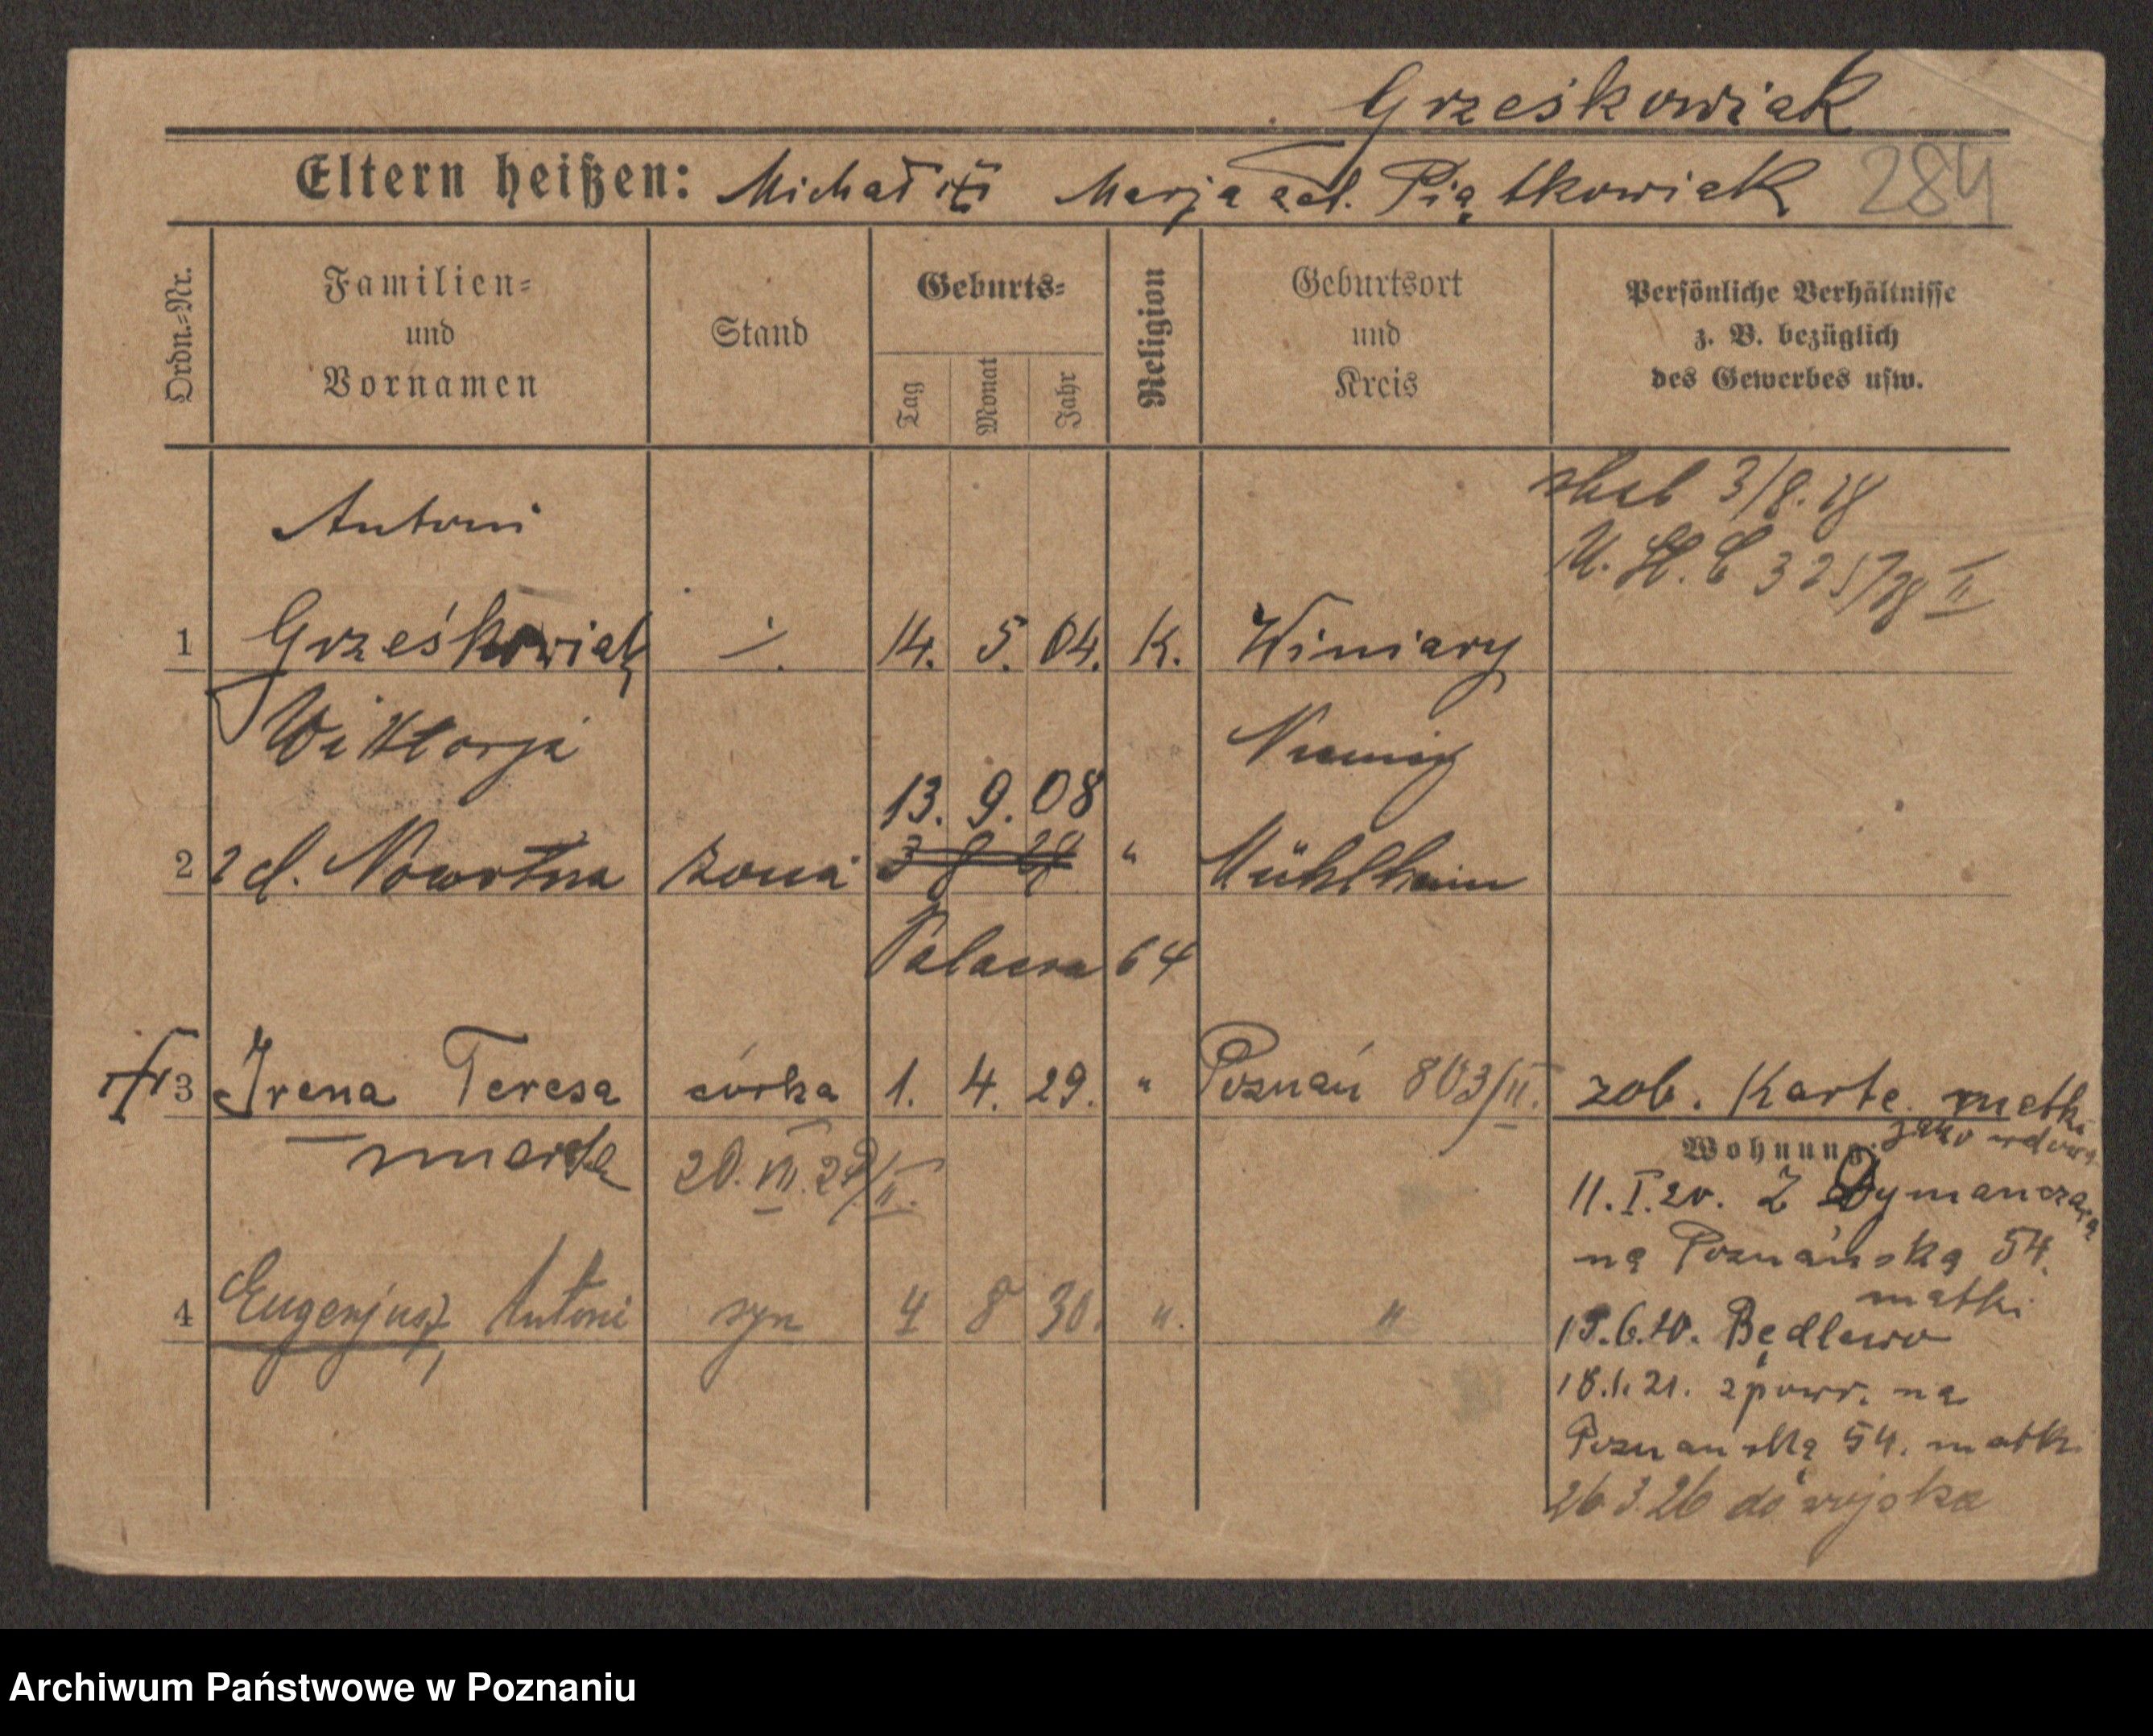 Grześkowiak
Eltern heißen: Michał i Marja zd. Piątkowiak 284
Ordn.-Nr.
Familien-
und
Vornamen
Stand
Geburts-
Tag
Monat
Jahr
Religion
Geburtsort
und
Kreis
Persönliche Verhältnisse
z. B. bezüglich
des Gewerbes usw.
Antoni
1 Grześkowiak ./. 14. 5. 04. K. Winiary
3/8. 28
U. St. C 325/28 II
Wiktorja
Niemcy
13. 9. 08
2 zd. Nowotna żona 3 8 28 " Mühlheim
Palacza 64
3 Irena Teresa córka 1. 4. 29. " Poznań 803/II. zob. Kartę matki
jako
umarła 20. VII. 29/II.
Wohnung:
11. I. 20. Z Dymaczewa
na Poznańską 54.
matki
4 Eugenjusz Antoni syn 4 8 30. ". "
15.6.20. Będlewo
18.1.21. zpowr. na
Poznańską 54. matki
26.3.26 do wojska
Archiwum Państwowe w Poznaniu